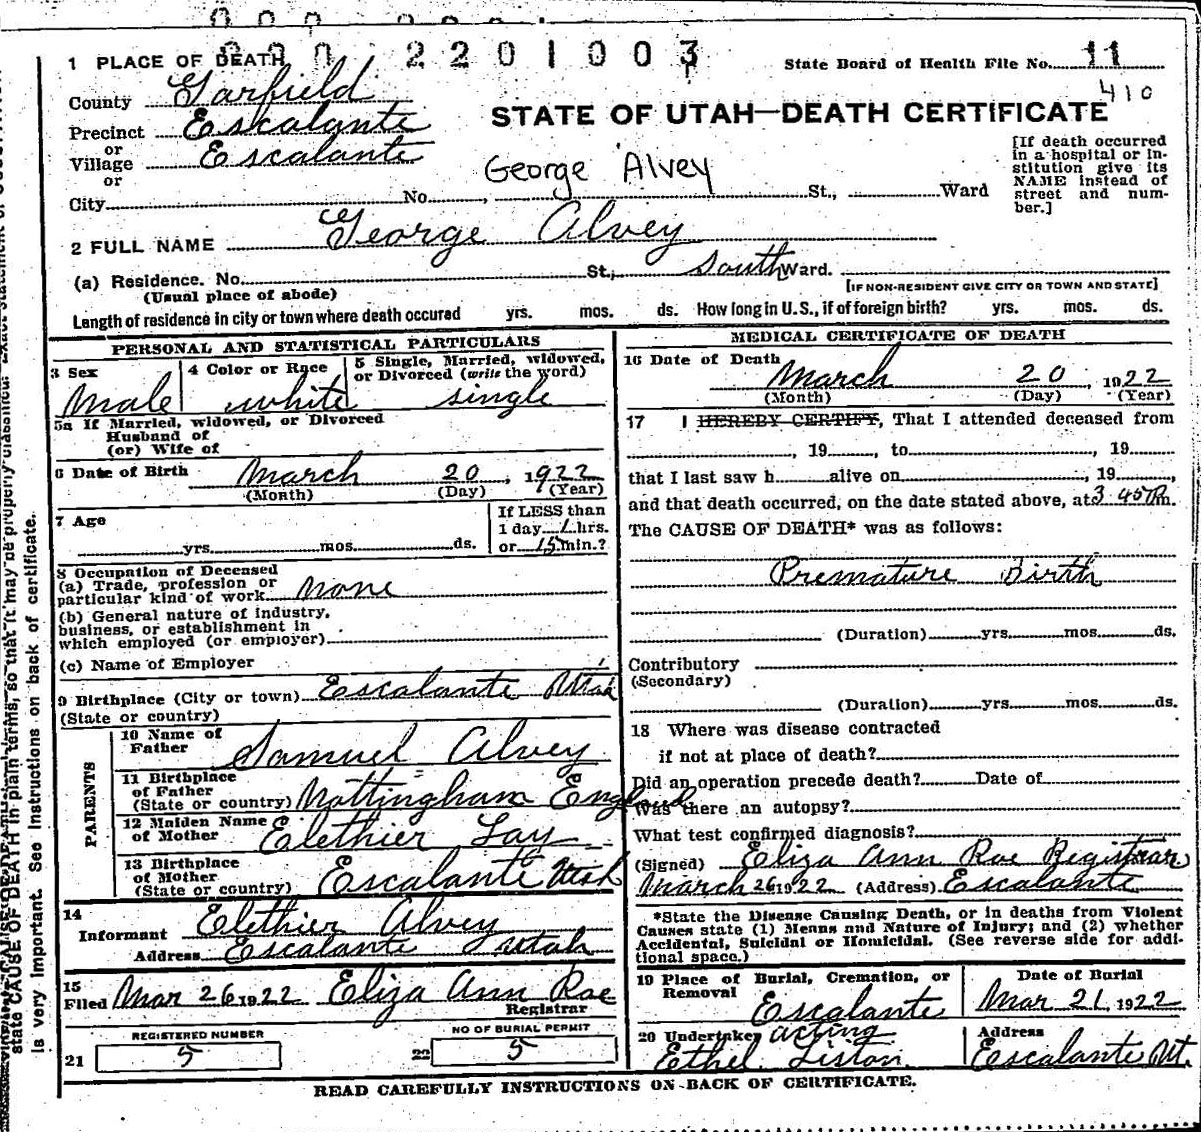 000 2201003
1 PLACE OF DEATH
State Board of Health File No. 11
410
County Garfield
STATE OF UTAH—DEATH CERTIFICATE
Precinct Escalante
or
Village Escalante
or
George Alvey
City No. St., Ward
[If death occurred
in a hospital or in-
stitution give its
NAME instead of
street and num-
ber.]
2 FULL NAME George Alvey
(a) Residence. No. St., South Ward.
(Usual place of abode)
[IF NON-RESIDENT GIVE CITY OR TOWN AND STATE]
Length of residence in city or town where death occured yrs. mos. ds. How long in U.S., if of foreign birth? yrs. mos. ds.
PERSONAL AND STATISTICAL PARTICULARS
3 Sex
Male
4 Color or Race
white
5 Single, Married, widowed,
or Divorced (write the word)
single
5a If Married, widowed, or Divorced
Husband of
(or) Wife of
6 Date of Birth March 20, 1922
(Month) (Day) (Year)
7 Age
yrs. mos. ds.
If LESS than
1 day 1 hrs.
or 15 min.?
8 Occupation of Deceased
(a) Trade, profession or
particular kind of work none
(b) General nature of industry,
business, or establishment in
which employed (or employer)
(c) Name of Employer
9 Birthplace (City or town) Escalante Utah
(State or country)
PARENTS
10 Name of
Father Samuel Alvey
11 Birthplace
of Father
(State or country) Nottingham England
12 Maiden Name
of Mother Elethier Lay
13 Birthplace
of Mother
(State or country) Escalante Utah
14
Informant Elethier Alvey
Address Escalante Utah
15
Filed Mar 26 1922 Eliza Ann Roe
Registrar
REGISTERED NUMBER
21 5
NO OF BURIAL PERMIT
22 5
MEDICAL CERTIFICATE OF DEATH
16 Date of Death
March 20, 1922
(Month) (Day) (Year)
17 I HEREBY CERTIFY, That I attended deceased from
, 19 , to , 19
that I last saw h alive on , 19 ,
and that death occurred, on the date stated above, at 3 45 P.m.
The CAUSE OF DEATH* was as follows:
Premature Birth
(Duration) yrs. mos. ds.
Contributory
(Secondary)
(Duration) yrs. mos. ds.
18 Where was disease contracted
if not at place of death?
Did an operation precede death? Date of
Was there an autopsy?
What test confirmed diagnosis?
(Signed) Eliza Ann Roe Registrar
March 26 1922 (Address) Escalante
*State the Disease Causing Death, or in deaths from Violent
Causes state (1) Means and Nature of Injury; and (2) whether
Accidental, Suicidal or Homicidal. (See reverse side for addi-
tional space.)
19 Place of Burial, Cremation, or
Removal
Escalante
Date of Burial
Mar 21, 1922
20 Undertaker acting
Ethel Liston
Address
Escalante Ut.
READ CAREFULLY INSTRUCTIONS ON BACK OF CERTIFICATE.
state CAUSE OF DEATH in plain terms, so that it may be properly classified.
is very important. See Instructions on back of certificate.